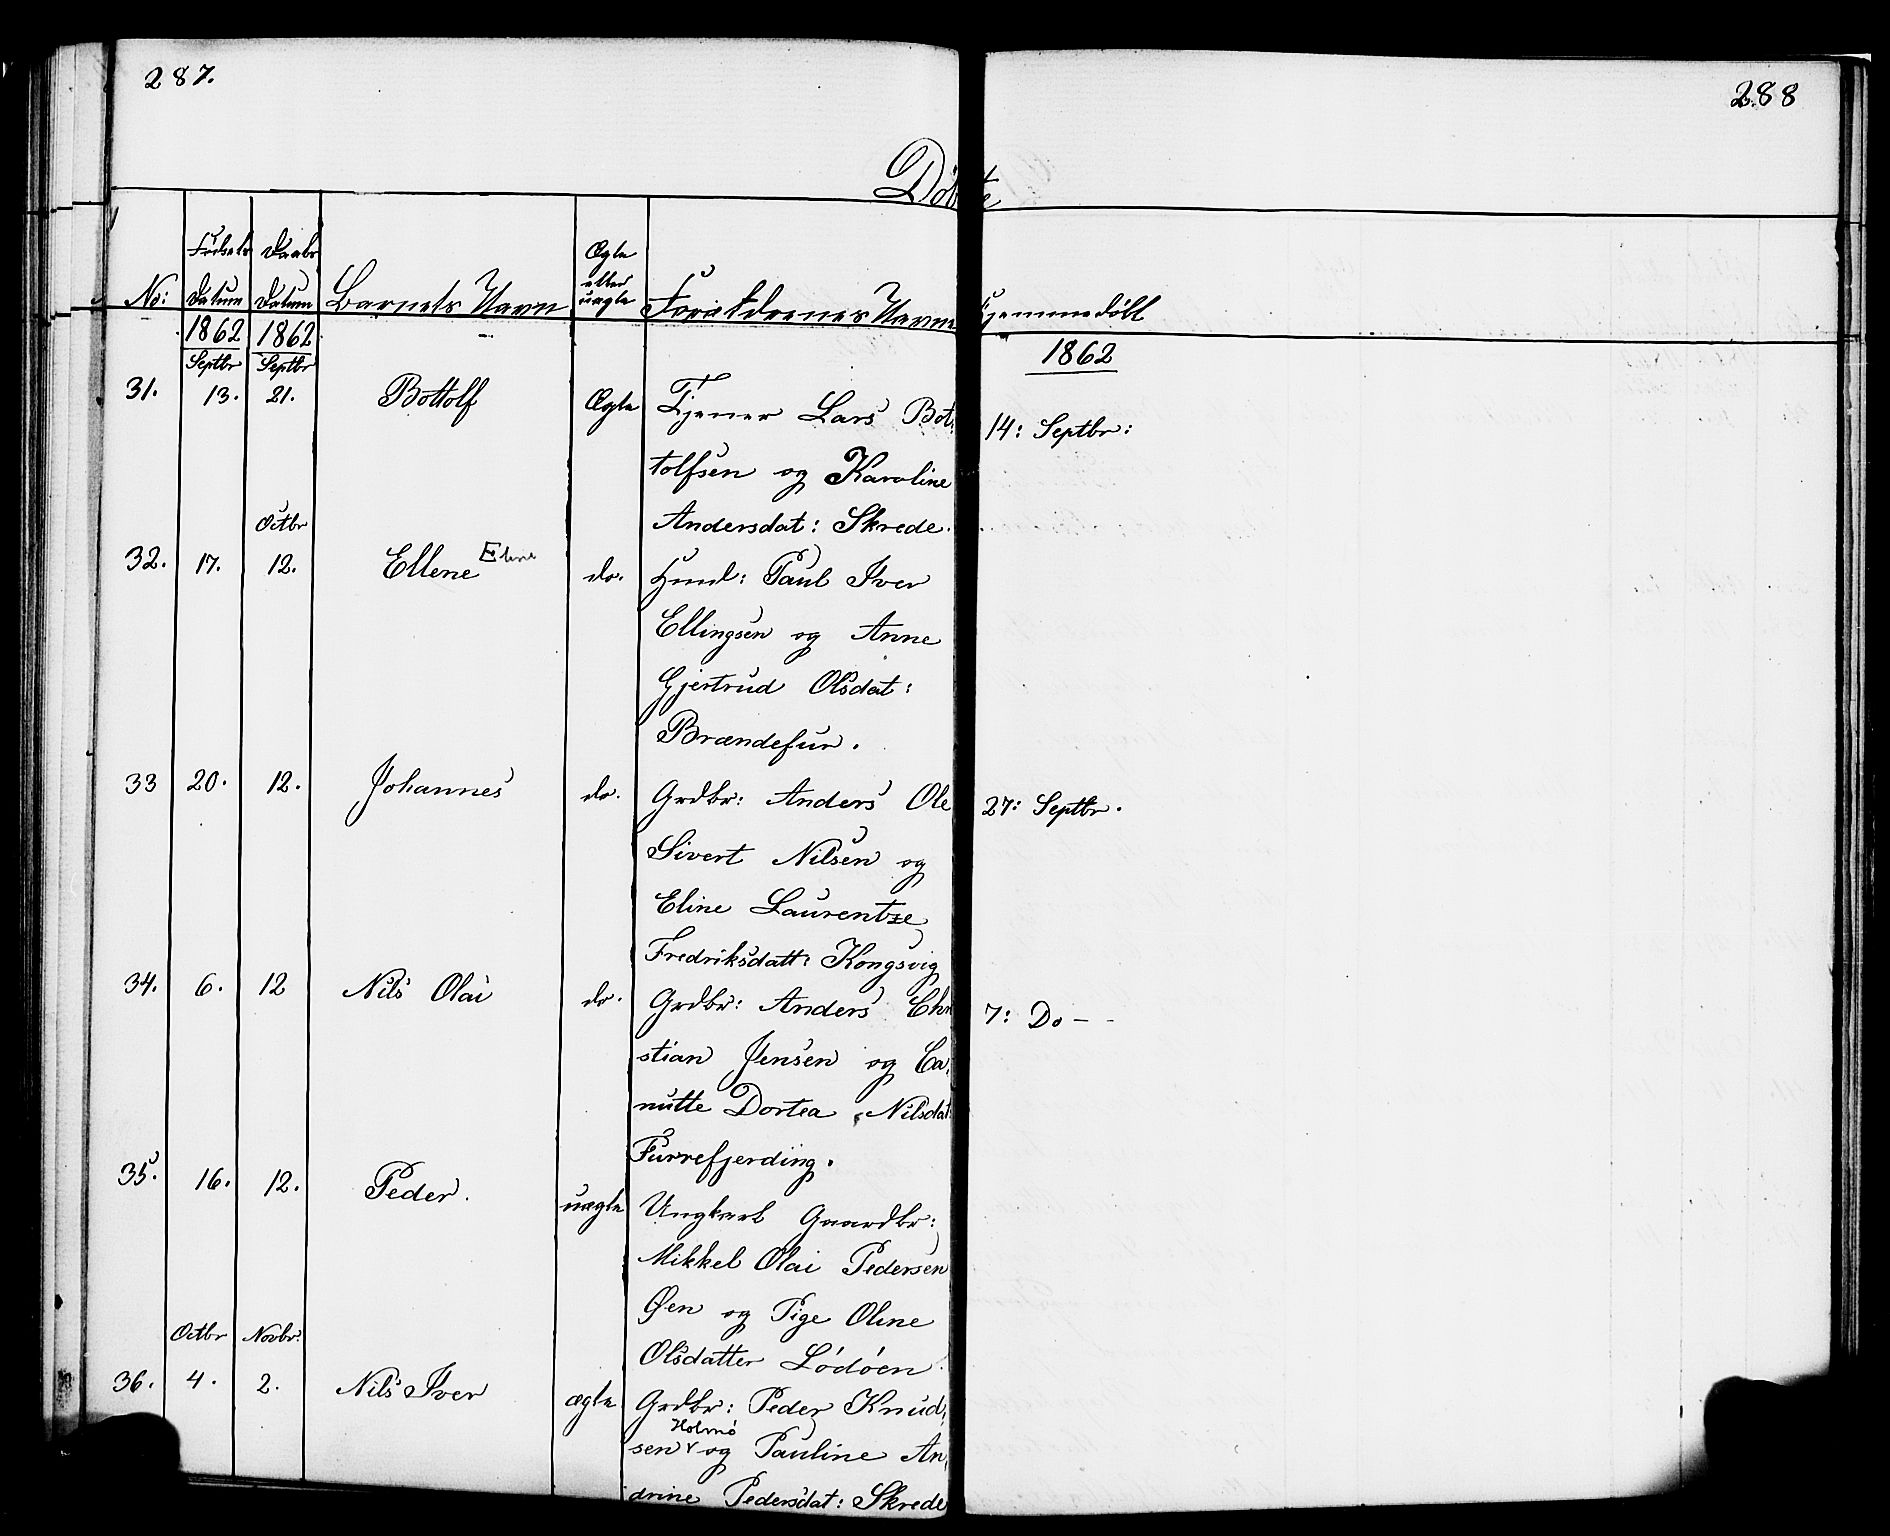 287.
288
Døbte
No: Fødsels Datum Daabs Datum Barnets Navn Ægte eller uægte Forældrenes Navne Hjemmedøbt
1862 1862 1862
Septbr Septbr
31. 13. 21. Bottolf Ægte Tjener Lars Bot- 14: Septbr:
tolfsen og Karoline
Andersdat: Skrede.
Octbr
32. 17. 12. Ellene Eline do. Husm: Paul Iver
Ellingsen og Anne
Gjertrud Olsdat:
Brændefur.
33 20. 12. Johannes do. Grdbr: Anders Ole 27: Septbr.
Sivert Nilsen og
Eline Laurentze
Fredriksdatt: Kongsvig
34. 6. 12 Nils Olai do. Grdbr: Anders Chr 7: Do - -
stian Jensen og Ca-
nutte Dortea Nilsdat
Furrefjerding.
35. 16. 12. Peder. uægte Ungkarl Gaardbr:
Mikkel Olai Pedersen
Øen og Pige Oline
Olsdatter Lødøen.
Octbr Novbr:
36. 4. 2. Nils Iver ægte Grdbr: Peder Knud-
Holmø
sen og Pauline An-
drine Pedersdat: Skrede